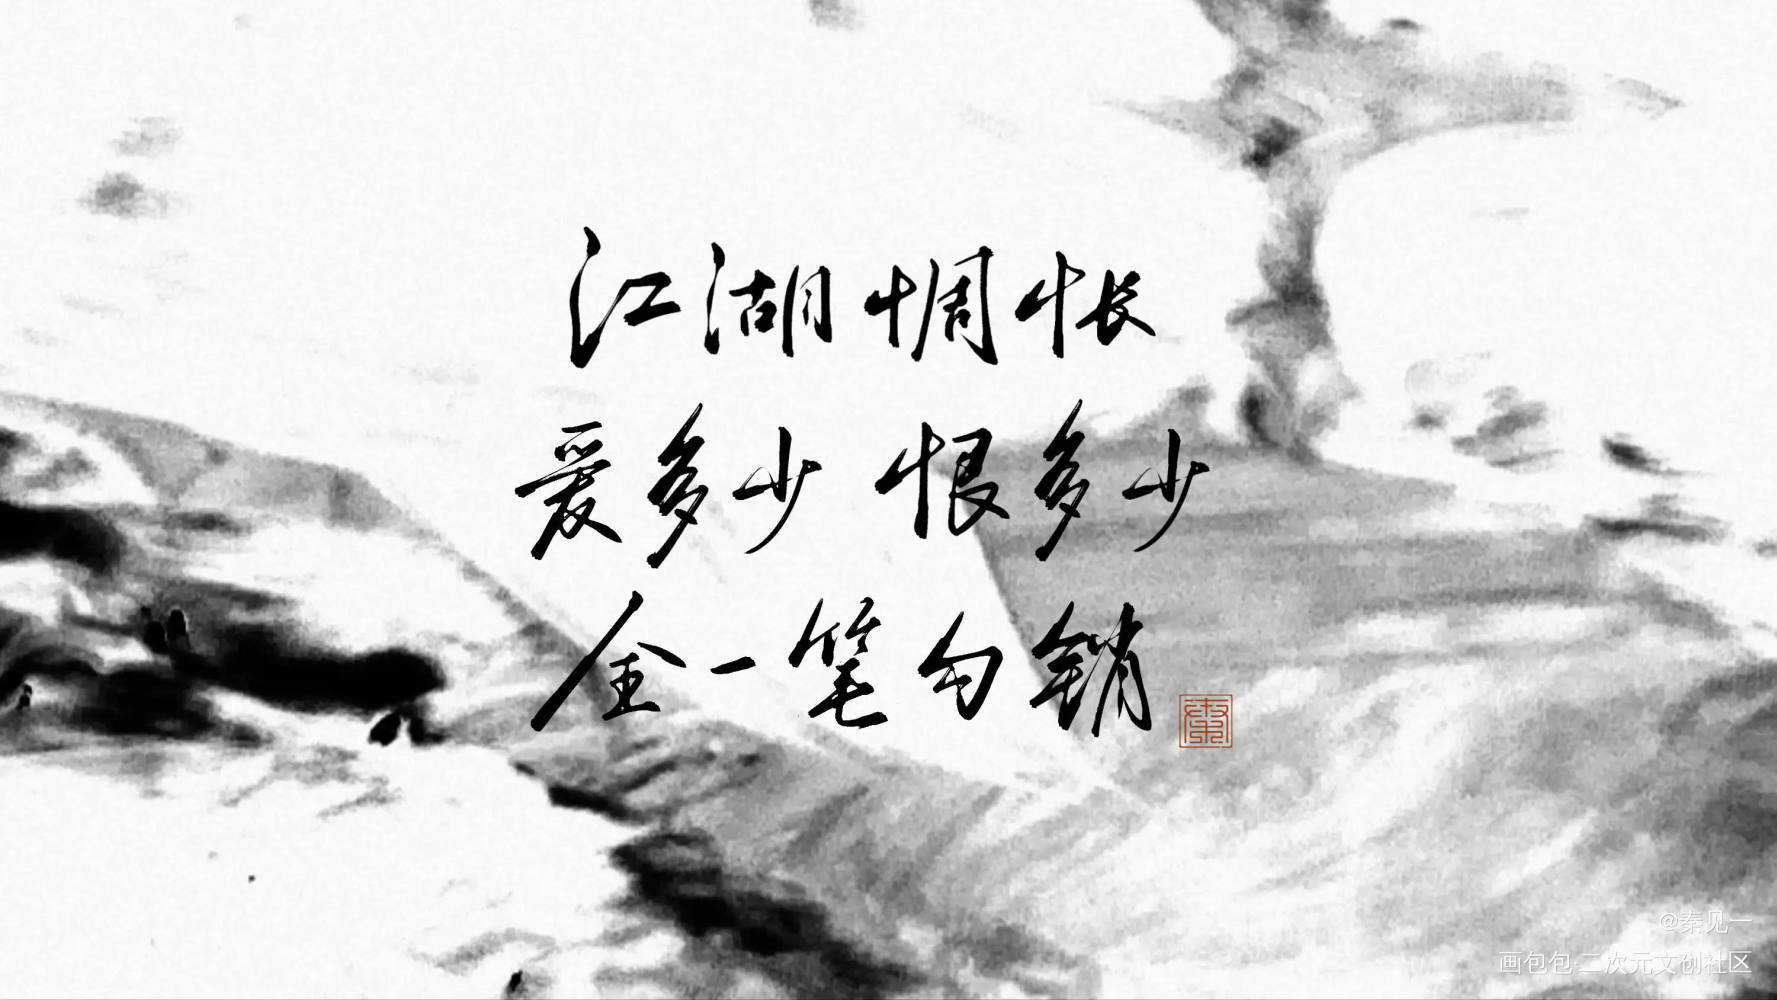 江湖惆怅
爱多少 恨多少
全一笔勾销
@秦见一
画包包·二次元文创社区